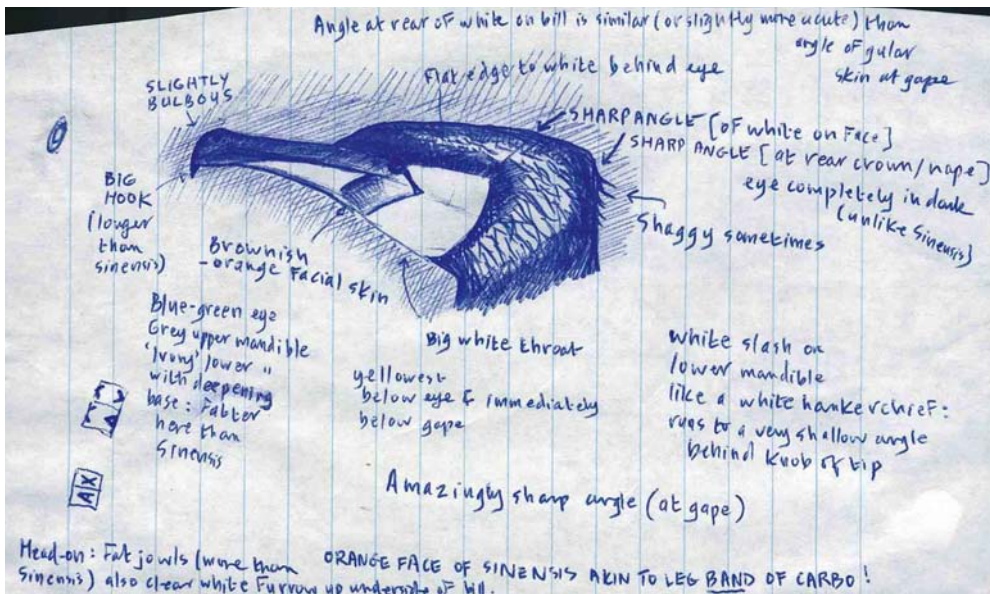 Angle at rear of white on bill is similar (or slightly more acute) than
angle of gular
skin at gape
SLIGHTLY
BULBOUS
Flat edge to white behind eye
SHARP ANGLE [of white on face]
SHARP ANGLE [at rear crown/nape]
eye completely in dark
(unlike Sinensis)
Shaggy sometimes
BIG
HOOK
(longer
than
sinensis)
Brownish
-orange facial skin
Blue-green eye
Grey upper mandible
'Ivory' lower "
with deepening
base: Fatter
here than
Sinensis
Big white throat
yellowest
below eye & immediately
below gape
white slash on
lower mandible
like a white hankerchief:
runs to a very shallow angle
behind knob of tip
AX
Amazingly sharp angle (at gape)
Head-on: Fat jowls (more than
Sinensis) also clear white Furrow up underside of bill.
ORANGE FACE OF SINENSIS AKIN TO LEG BAND OF CARBO!